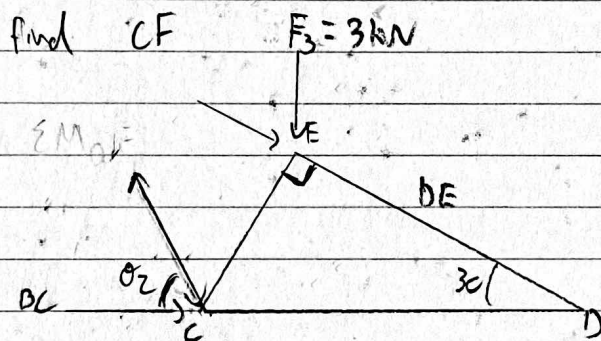 find CF F₃ = 3kN
E
ΣM
DE
θ₂
30
BC
C
D